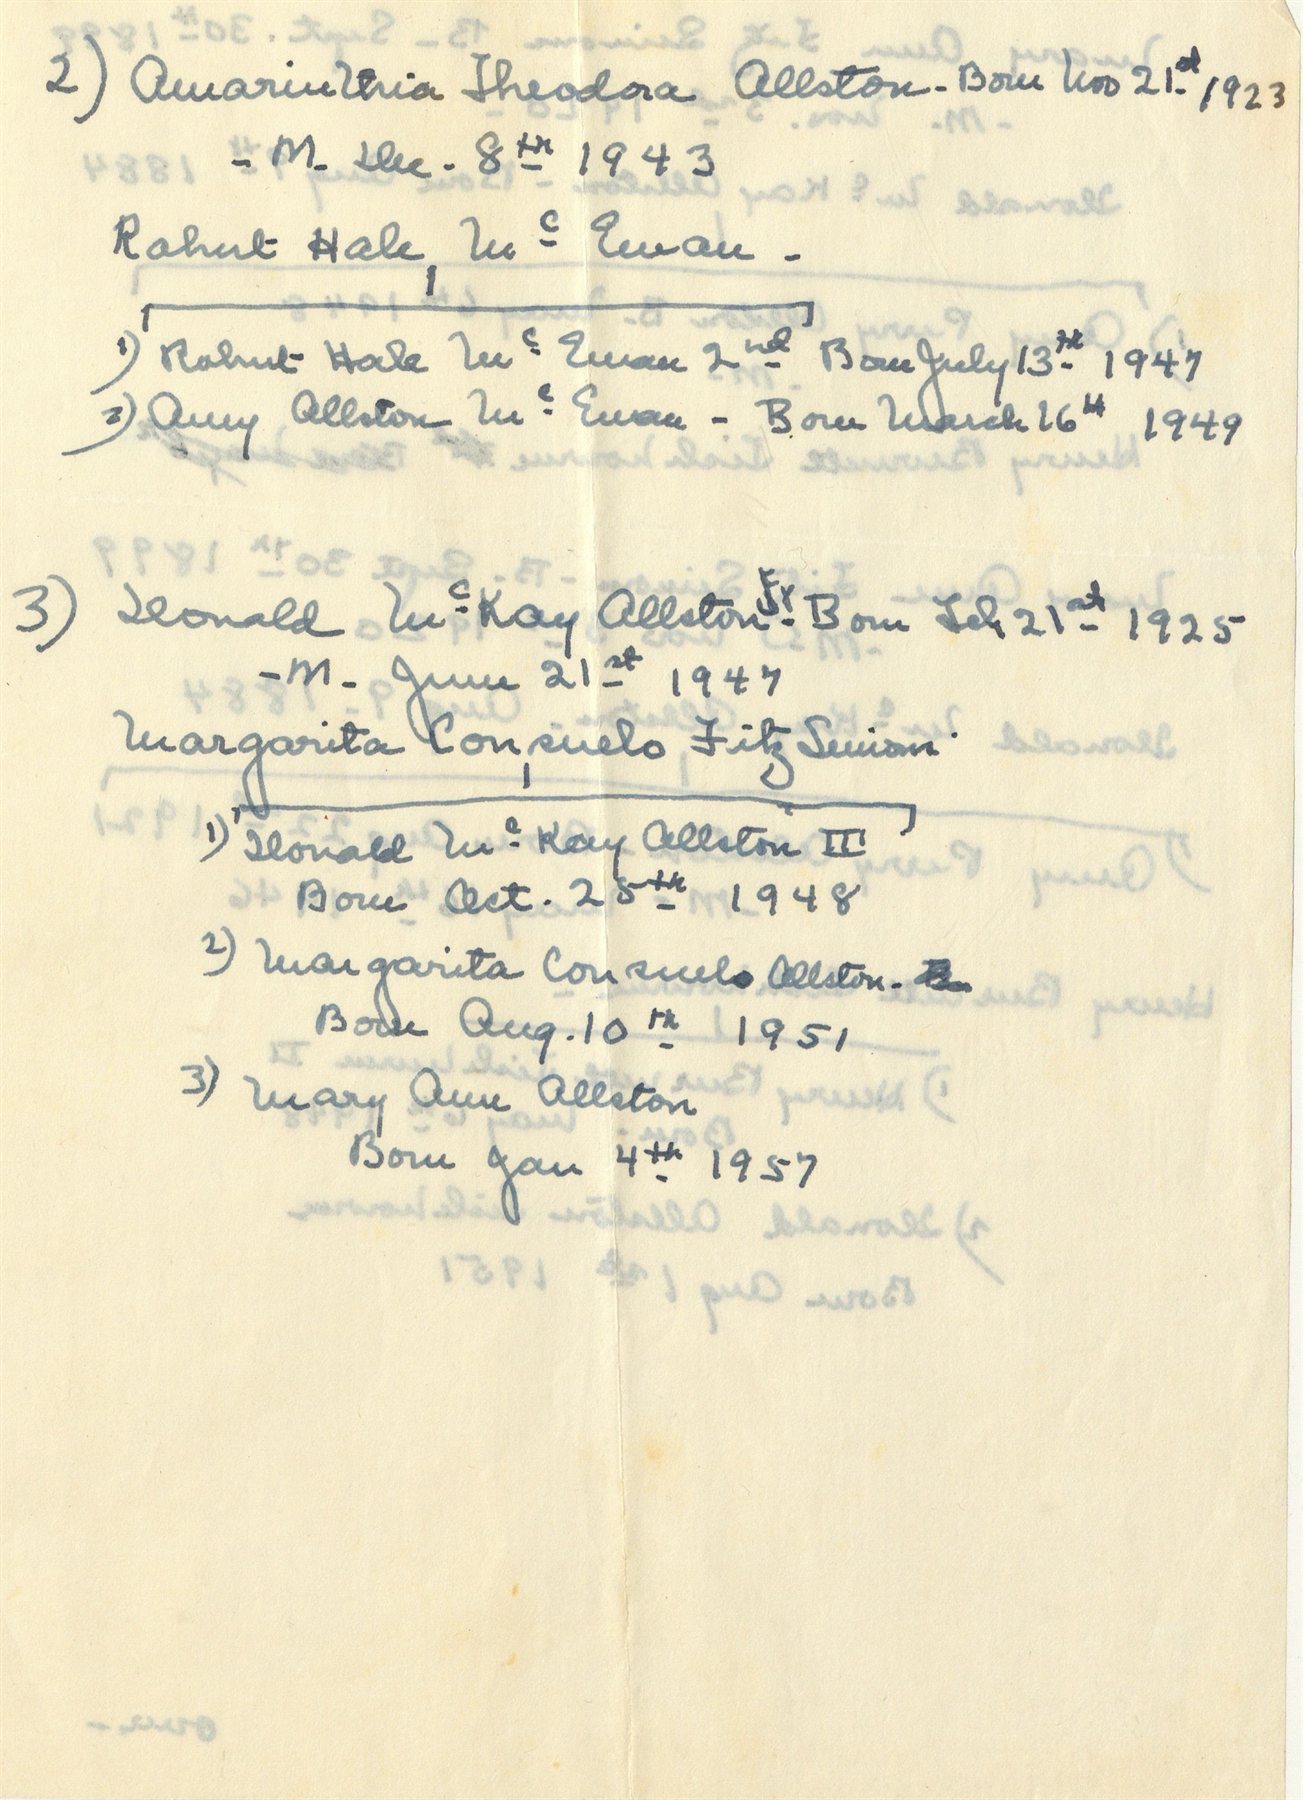 2) Amarinthia Theodora Allston - Born Nov 21st 1923
- M - Dec - 8th 1943
Robert Hale Mc Ewan -
1) Robert Hale Mc Ewan 2nd Born July 13th 1947
2) Amy Allston Mc Ewan - Born March 16th 1949
3) Donald Mc Kay Allston Jr - Born Feb 21st 1925
- M - June 21st 1947
Margarita Consuelo Fitz Simons
1) Donald Mc Kay Allston II
Born Oct. 25th 1948
2) Margarita Consuelo Allston -
Born Aug. 10th 1951
3) Mary Ann Allston
Born Jan 4th 1957